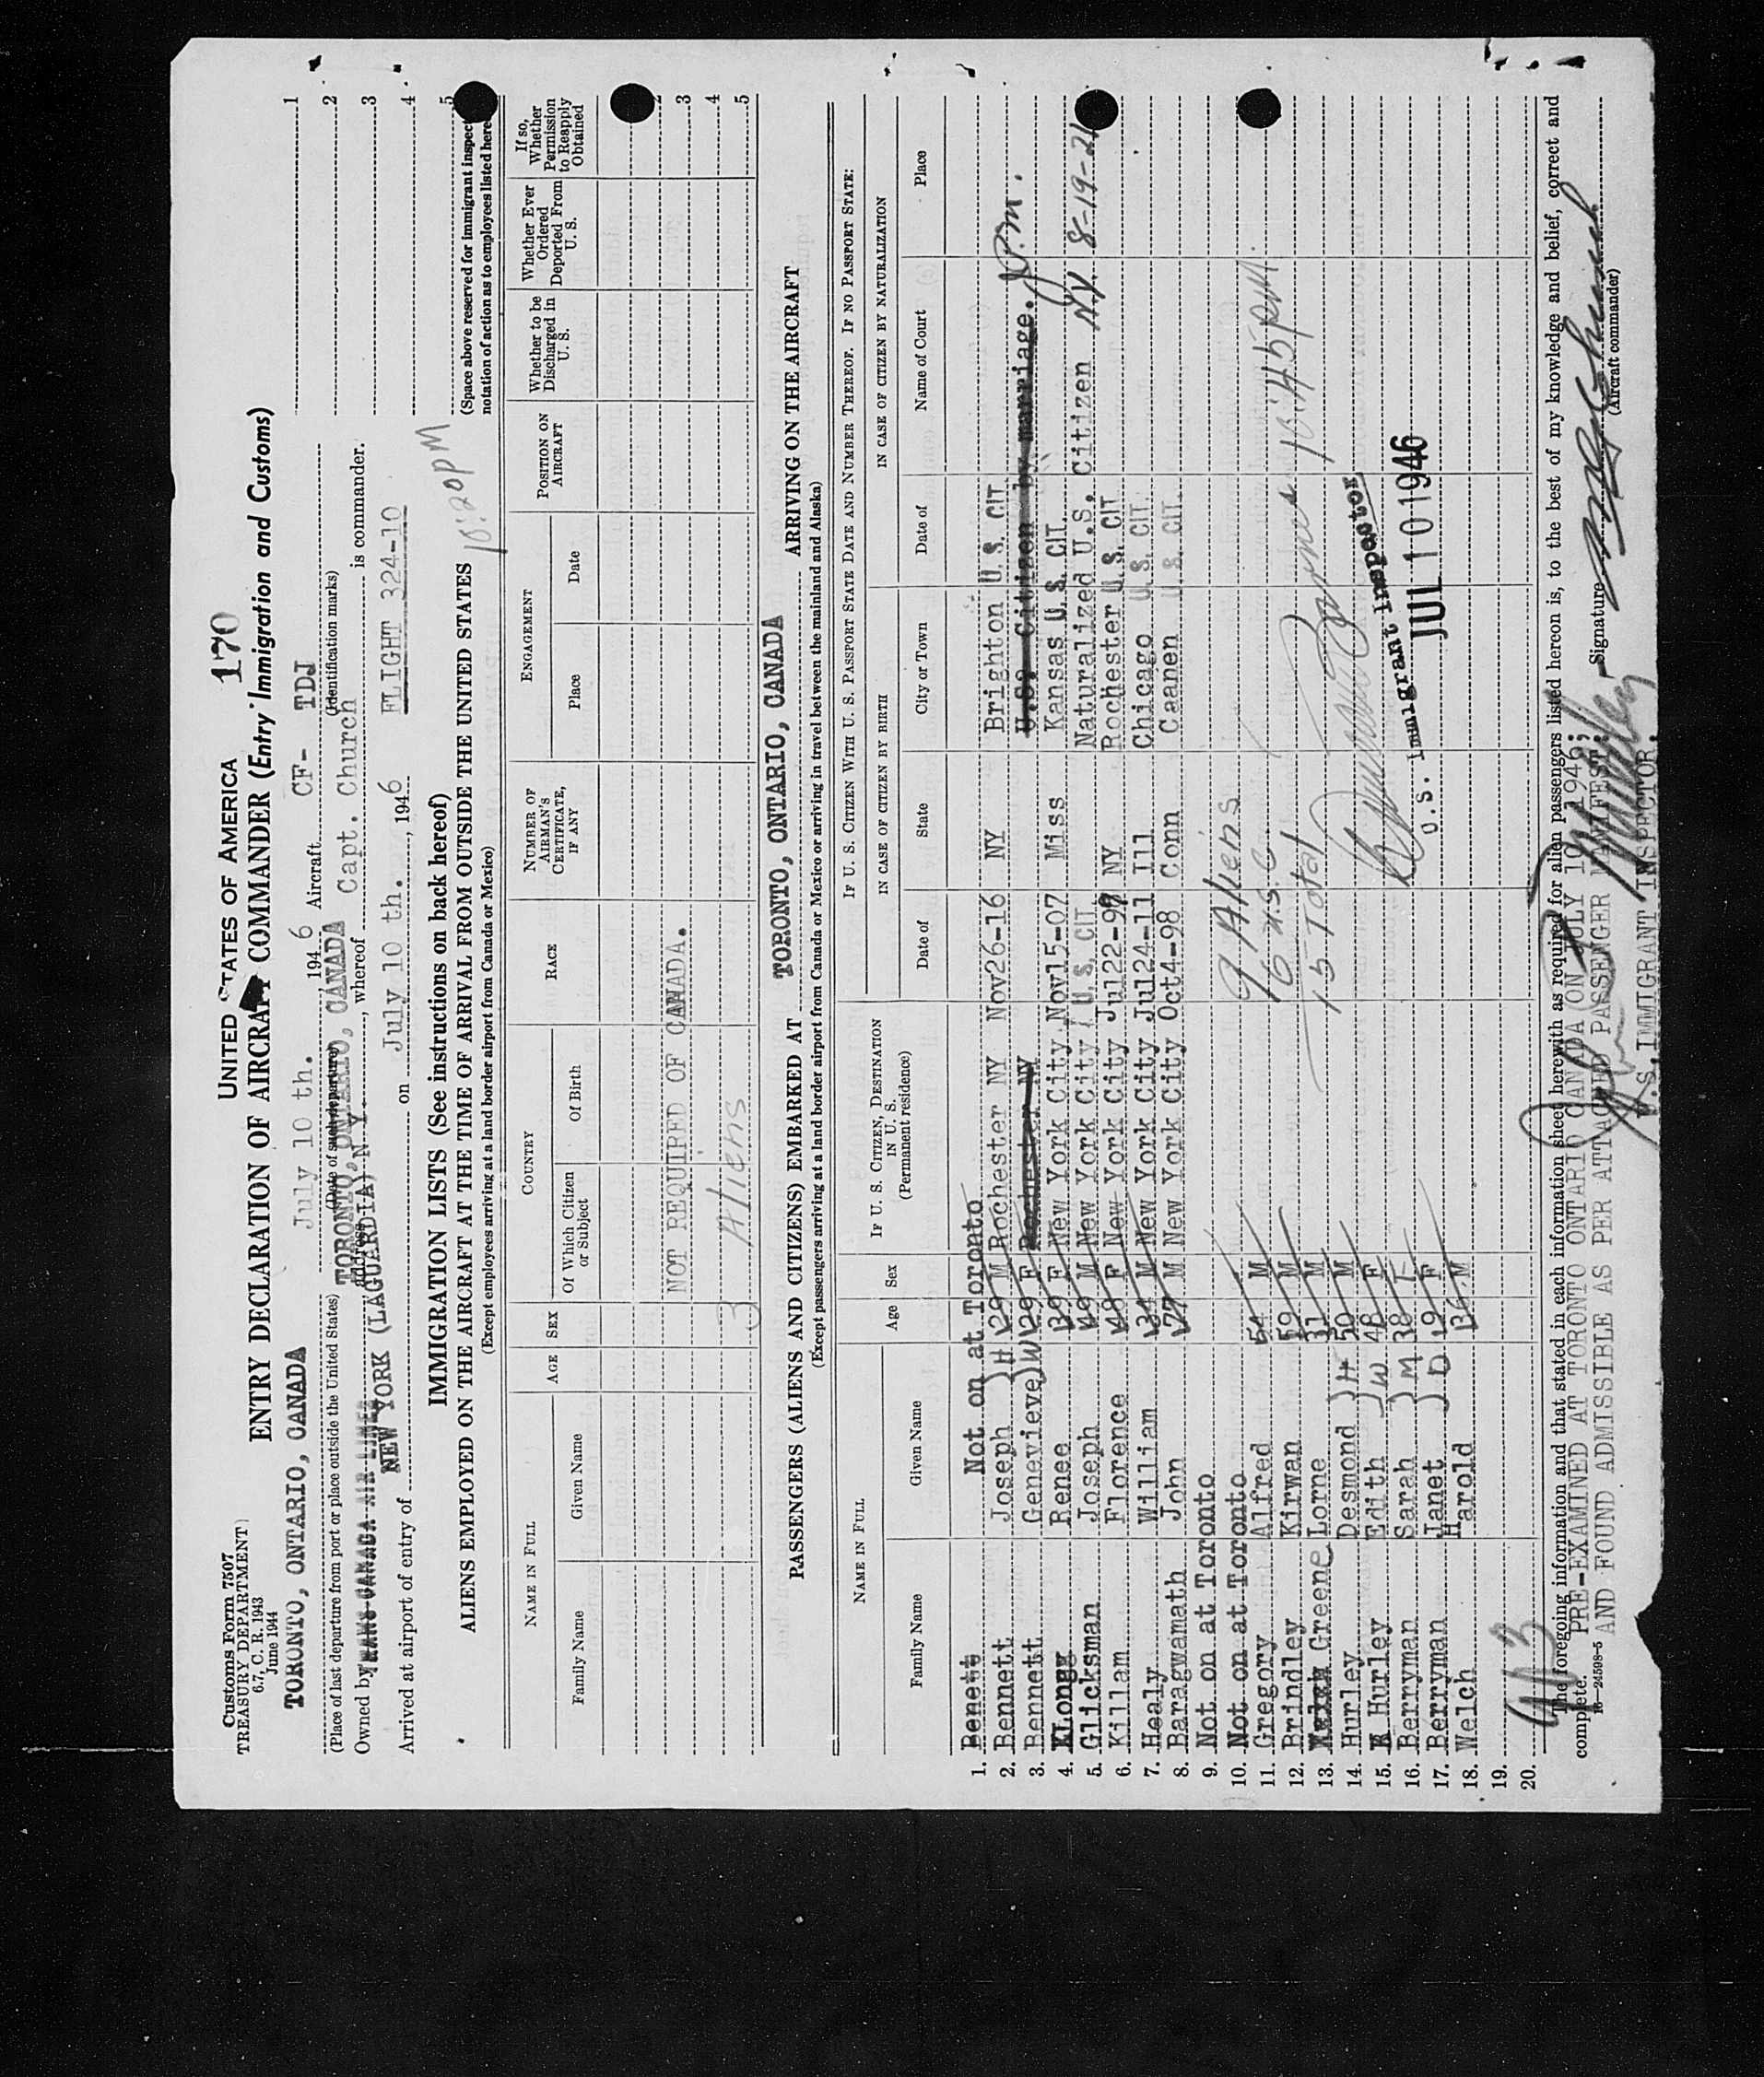 Customs Form 7507
TREASURY DEPARTMENT
6.7, C. R. 1943
June 1944
UNITED STATES OF AMERICA 170
ENTRY DECLARATION OF AIRCRAFT COMMANDER (Entry Immigration and Customs)
TORONTO, ONTARIO, CANADA July 10 th. , 1946 Aircraft CF- TDJ
(Place of last departure from port or place outside the United States) (Date of such departure) (Identification marks)
Owned by TRANS-CANADA AIR LINES address TORONTO, ONTARIO, CANADA , whereof Capt. Church is commander.
Arrived at airport of entry of NEW YORK (LAGUARDIA) N Y on July 10 th. , 1946 FLIGHT 324-10
1
2
3
4
5
IMMIGRATION LISTS (See instructions on back hereof)
ALIENS EMPLOYED ON THE AIRCRAFT AT THE TIME OF ARRIVAL FROM OUTSIDE THE UNITED STATES 10:20PM
(Except employees arriving at a land border airport from Canada or Mexico)
(Space above reserved for immigrant inspect
notation of action as to employees listed here
NAME IN FULL
Family Name Given Name
AGE SEX
COUNTRY
Of Which Citizen or Subject Of Birth
RACE
NUMBER OF AIRMAN'S CERTIFICATE, IF ANY
ENGAGEMENT
Place Date
POSITION ON AIRCRAFT
Whether to be Discharged in U. S.
Whether Ever Ordered Deported From U. S.
If so, Whether Permission to Reapply Obtained
2
NOT REQUIRED OF CANADA. 3
4
3 Aliens 5
PASSENGERS (ALIENS AND CITIZENS) EMBARKED AT TORONTO, ONTARIO, CANADA ARRIVING ON THE AIRCRAFT
(Except passengers arriving at a land border airport from Canada or Mexico or arriving in travel between the mainland and Alaska)
NAME IN FULL
Family Name Given Name
Age Sex
IF U. S. CITIZEN, DESTINATION IN U. S.
(Permanent residence)
IF U. S. CITIZEN WITH U. S. PASSPORT STATE DATE AND NUMBER THEREOF. IF NO PASSPORT STATE:
IN CASE OF CITIZEN BY BIRTH
Date of State City or Town
IN CASE OF CITIZEN BY NATURALIZATION
Date of Name of Court Place
1. Benett Not on at Toronto
2. Bennett Joseph )H 29 M Rochester NY Nov26-16 NY Brighton U.S. CIT
3. Bennett Genevieve)W 29 F Rochester NY U.S. Citizen by marriage.
4. KLongg Renee 39 F New York City Nov15-07 Miss Kansas U.S. CIT.
5. Glicksman Joseph 49 M New York City U.S. CIT. Naturalized U.S. Citizen N.Y. 8-19-21
6. Killam Florence 48 F New York City Jul22-97 NY Rochester U.S. CIT
7. Healy William 34 M New York City Jul24-11 Ill Chicago U.S. CIT.
8. Baragwamath John 77 M New York City Oct4-98 Conn Caanen U.S. CIT.
9. Not on at Toronto
10. Not on at Toronto 9 Aliens
11. Gregory Alfred 54 M 6 U.S.C
12. Brindley Kirwan 59 M 15 Total 10:45PM
13. Greene Lorne 31 M
14. Hurley Desmond )H 50 M
U.S. Immigrant Inspector
15. Hurley Edith )W 48 F
16. Berryman Sarah )M 38 F JUL 10 1946
17. Berryman Janet )D 19 F
18. Welch Harold 36 M
19.
20.
The foregoing information and that stated in each information sheet herewith as required for alien passengers listed hereon is, to the best of my knowledge and belief, correct and
complete.
PRE-EXAMINED AT TORONTO ONTARIO CANADA ON JULY 10 1946;
AND FOUND ADMISSIBLE AS PER ATTACHED PASSENGER MANIFEST.
Signature
(Aircraft commander)
16—24598-5
U.S. IMMIGRANT INSPECTOR.